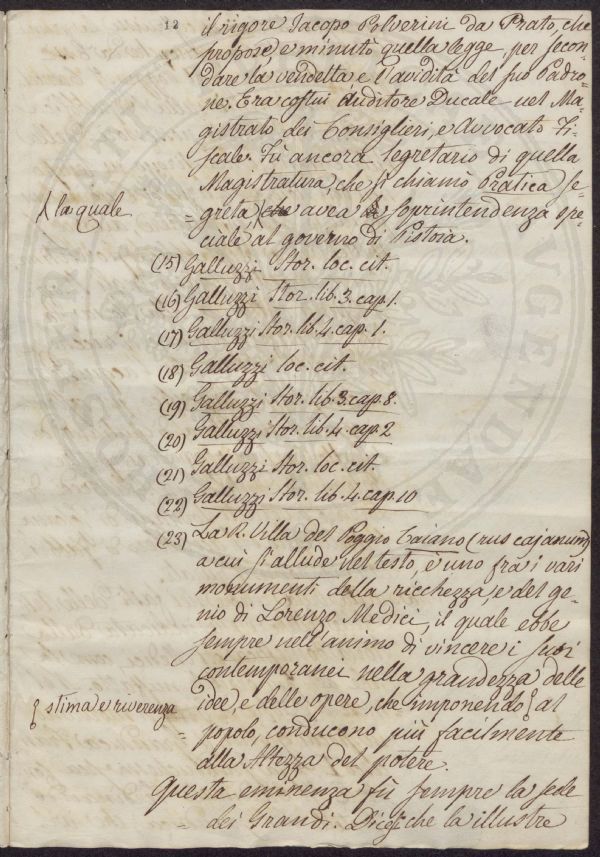 12
il rigore Jacopo Polverini da Prato, che
propose, e minutò quella legge, per secon=
dare la vendetta e l'avidità del suo Padro=
ne. Era costui Auditore Ducale nel Ma=
gistrato dei Consiglieri, e Avvocato Fi=
scale. Fù ancora Segretario di quella
Magistratura, che si chiamò Pratica se=
la quale
= greta, che avea Soprintendenza spe=
ciale al governo di Pistoia.
(15) Galluzzi Stor. loc. cit.
(16) Galluzzi Stor. lib. 3. cap. 1.
(17) Galluzzi Stor. lib. 4. cap. 1.
(18) Galluzzi loc. cit.
(19) Galluzzi Stor. lib. 3. cap. 8.
(20) Galluzzi Stor. lib. 4. cap. 2
(21) Galluzzi Stor. loc. cit.
(22) Galluzzi Stor. lib. 4. cap. 10
(23) La R. Villa del Poggio Caiano (rus cajanum)
a cui si allude nel testo, è uno fra i vari
monumenti della ricchezza, e del ge=
nio di Lorenzo Medici, il quale ebbe
sempre nell'animo di vincere i suoi
contemporanei nella grandezza delle
idee, e delle opere, che imponendo al
stima e riverenza
= popolo, conducono più facilmente
alla Altezza del potere.
Questa eminenza fù sempre la sede
= dei Grandi. che la illustre